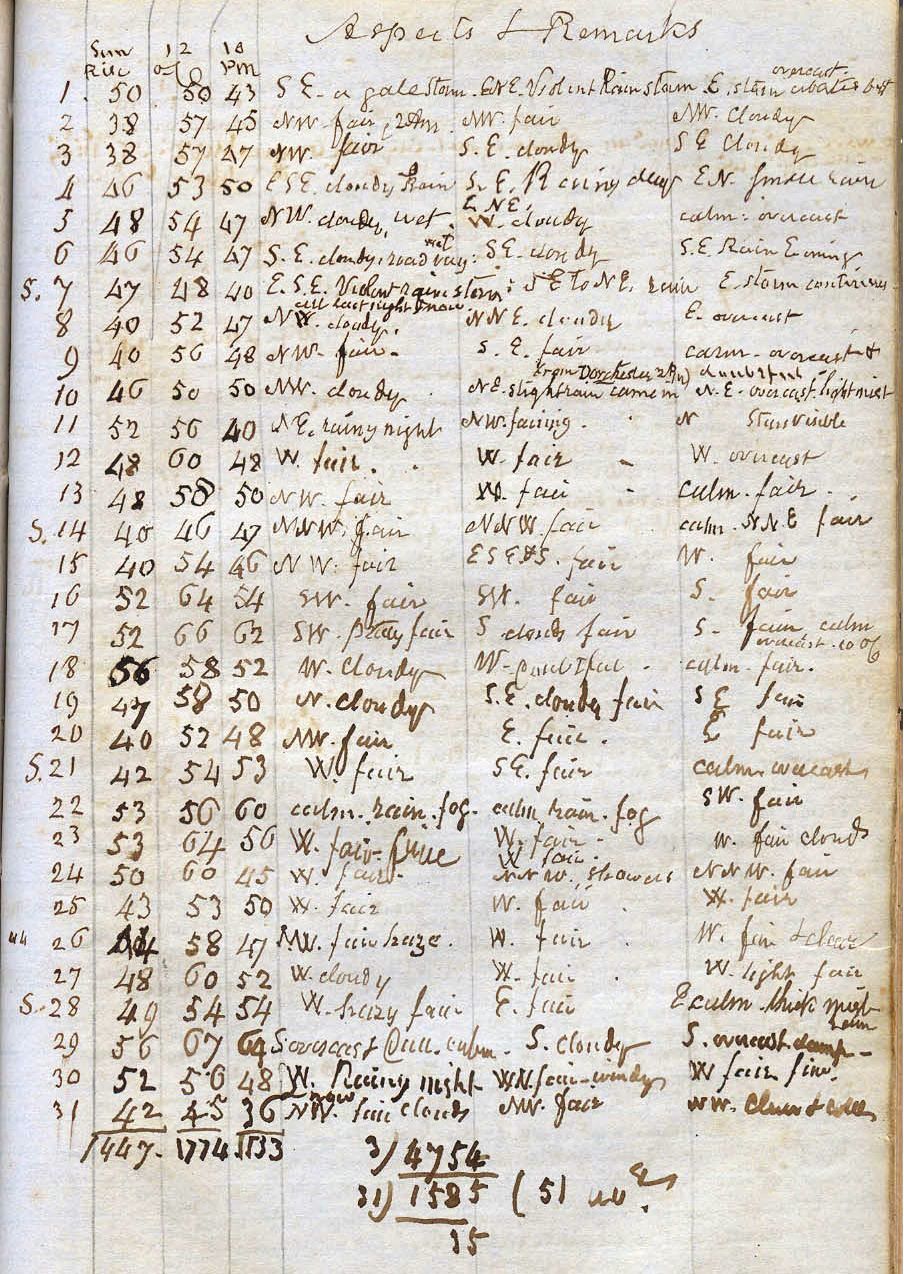 Aspects & Remarks
Sun Rise 12 oC 10 PM
overcast
1 50 50 43 S E - a gale storm. ENE. Violent Rain storm E. storm abates but
2 38 57 45 NW fair, 2 Am. NW. fair NW. Cloudy
3 38 57 47 NW. fair S. E. cloudy S E Cloudy
4 46 53 50 E S E. cloudy Rain S. E. Raining day E N. small rain
E N E.
5 48 54 47 NW. cloudy, wet. W. cloudy calm: overcast
wet
6 46 54 47 S. E. cloudy, road SE cloudy S.E Rain Evening
S. 7 47 48 40 E. S.E. Violent rain storm: SE to NE, rain E. storm continues
all last night & now
8 40 52 47 NW. cloudy. NNE. cloudy E. overcast
9 40 56 48 NW. fair. S. E. fair calm - overcast &
from Dorchester, 2 Pm) doubtful
10 46 50 50 NW. cloudy NE. slight rain came in N. E. overcast. light mist
11 52 56 40 NE. rainy night NW. fairing. N Stars visible
12 48 60 48 W. fair. W. fair W. overcast
13 48 58 50 NW. fair W. fair calm. fair.
S. 14 40 46 47 NNW. fair NNW. fair calm. N.N.E fair
15 40 54 46 NW. fair E S E & S. fair W. fair
16 52 64 54 SW. fair SW. fair S. fair
17 52 66 62 SW. fair S clouds fair S. fair calm
overcast. 10 oC
18 56 58 52 W. Cloudy W. calm. fair.
19 47 58 50 N. cloudy S.E. cloudy fair SE fair
20 40 52 48 NW. fair E. fair. E fair
S. 21 42 54 53 W. fair SE. fair calm. overcast
22 53 56 60 calm. rain. fog. calm, rain. fog SW. fair
23 53 64 56 W. fair - fine W. fair. W. fair clouds
W fair.
24 50 60 45 W. fair. NNW. showers NNW. fair
25 43 53 50 W. fair W. fair. W. fair
44 26 44 58 47 NW. fair haze. W. fair W. fair & clear
27 48 60 52 W. cloudy W. fair. W. light fair
S. 28 49 54 54 W. hazy fair E. fair E calm. thick mist
rain
29 56 67 64 S overcast calm. S. cloudy S. overcast damp -
30 52 56 48 W. Rainy night W.N. fair - windy W fair fine.
now
31 42 45 36 NW. fair clouds NW. fair NW. Clear & cold
1447. 1774 1533
3) 4754
31) 1585 ( 51
35